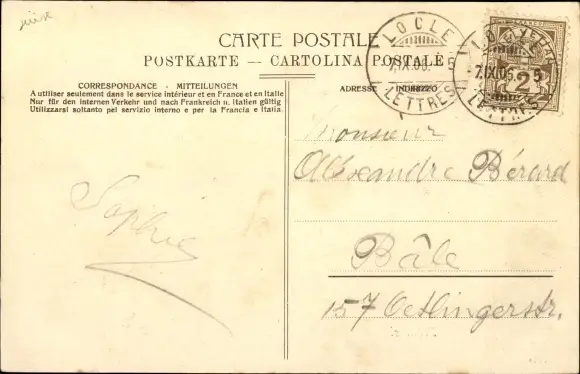 suisse
CARTE POSTALE
POSTKARTE — CARTOLINA POSTALE
LOCLE
7.IX.05. 5
LETTRES
LOCLE
-7.IX.05. 5
LETTRES
2
CORRESPONDANCE - MITTEILUNGEN
A utiliser seulement dans le service intérieur et en France et en Italie
Nur für den internen Verkehr und nach Frankreich u. Italien gültig
Utilizzarsi soltanto pel servizio interno e per la Francia e Italia.
ADRESSE INDIRIZZO
Monsieur
Alexandre Bérard
Sophie
Bâle
157 Oetlingerstr.